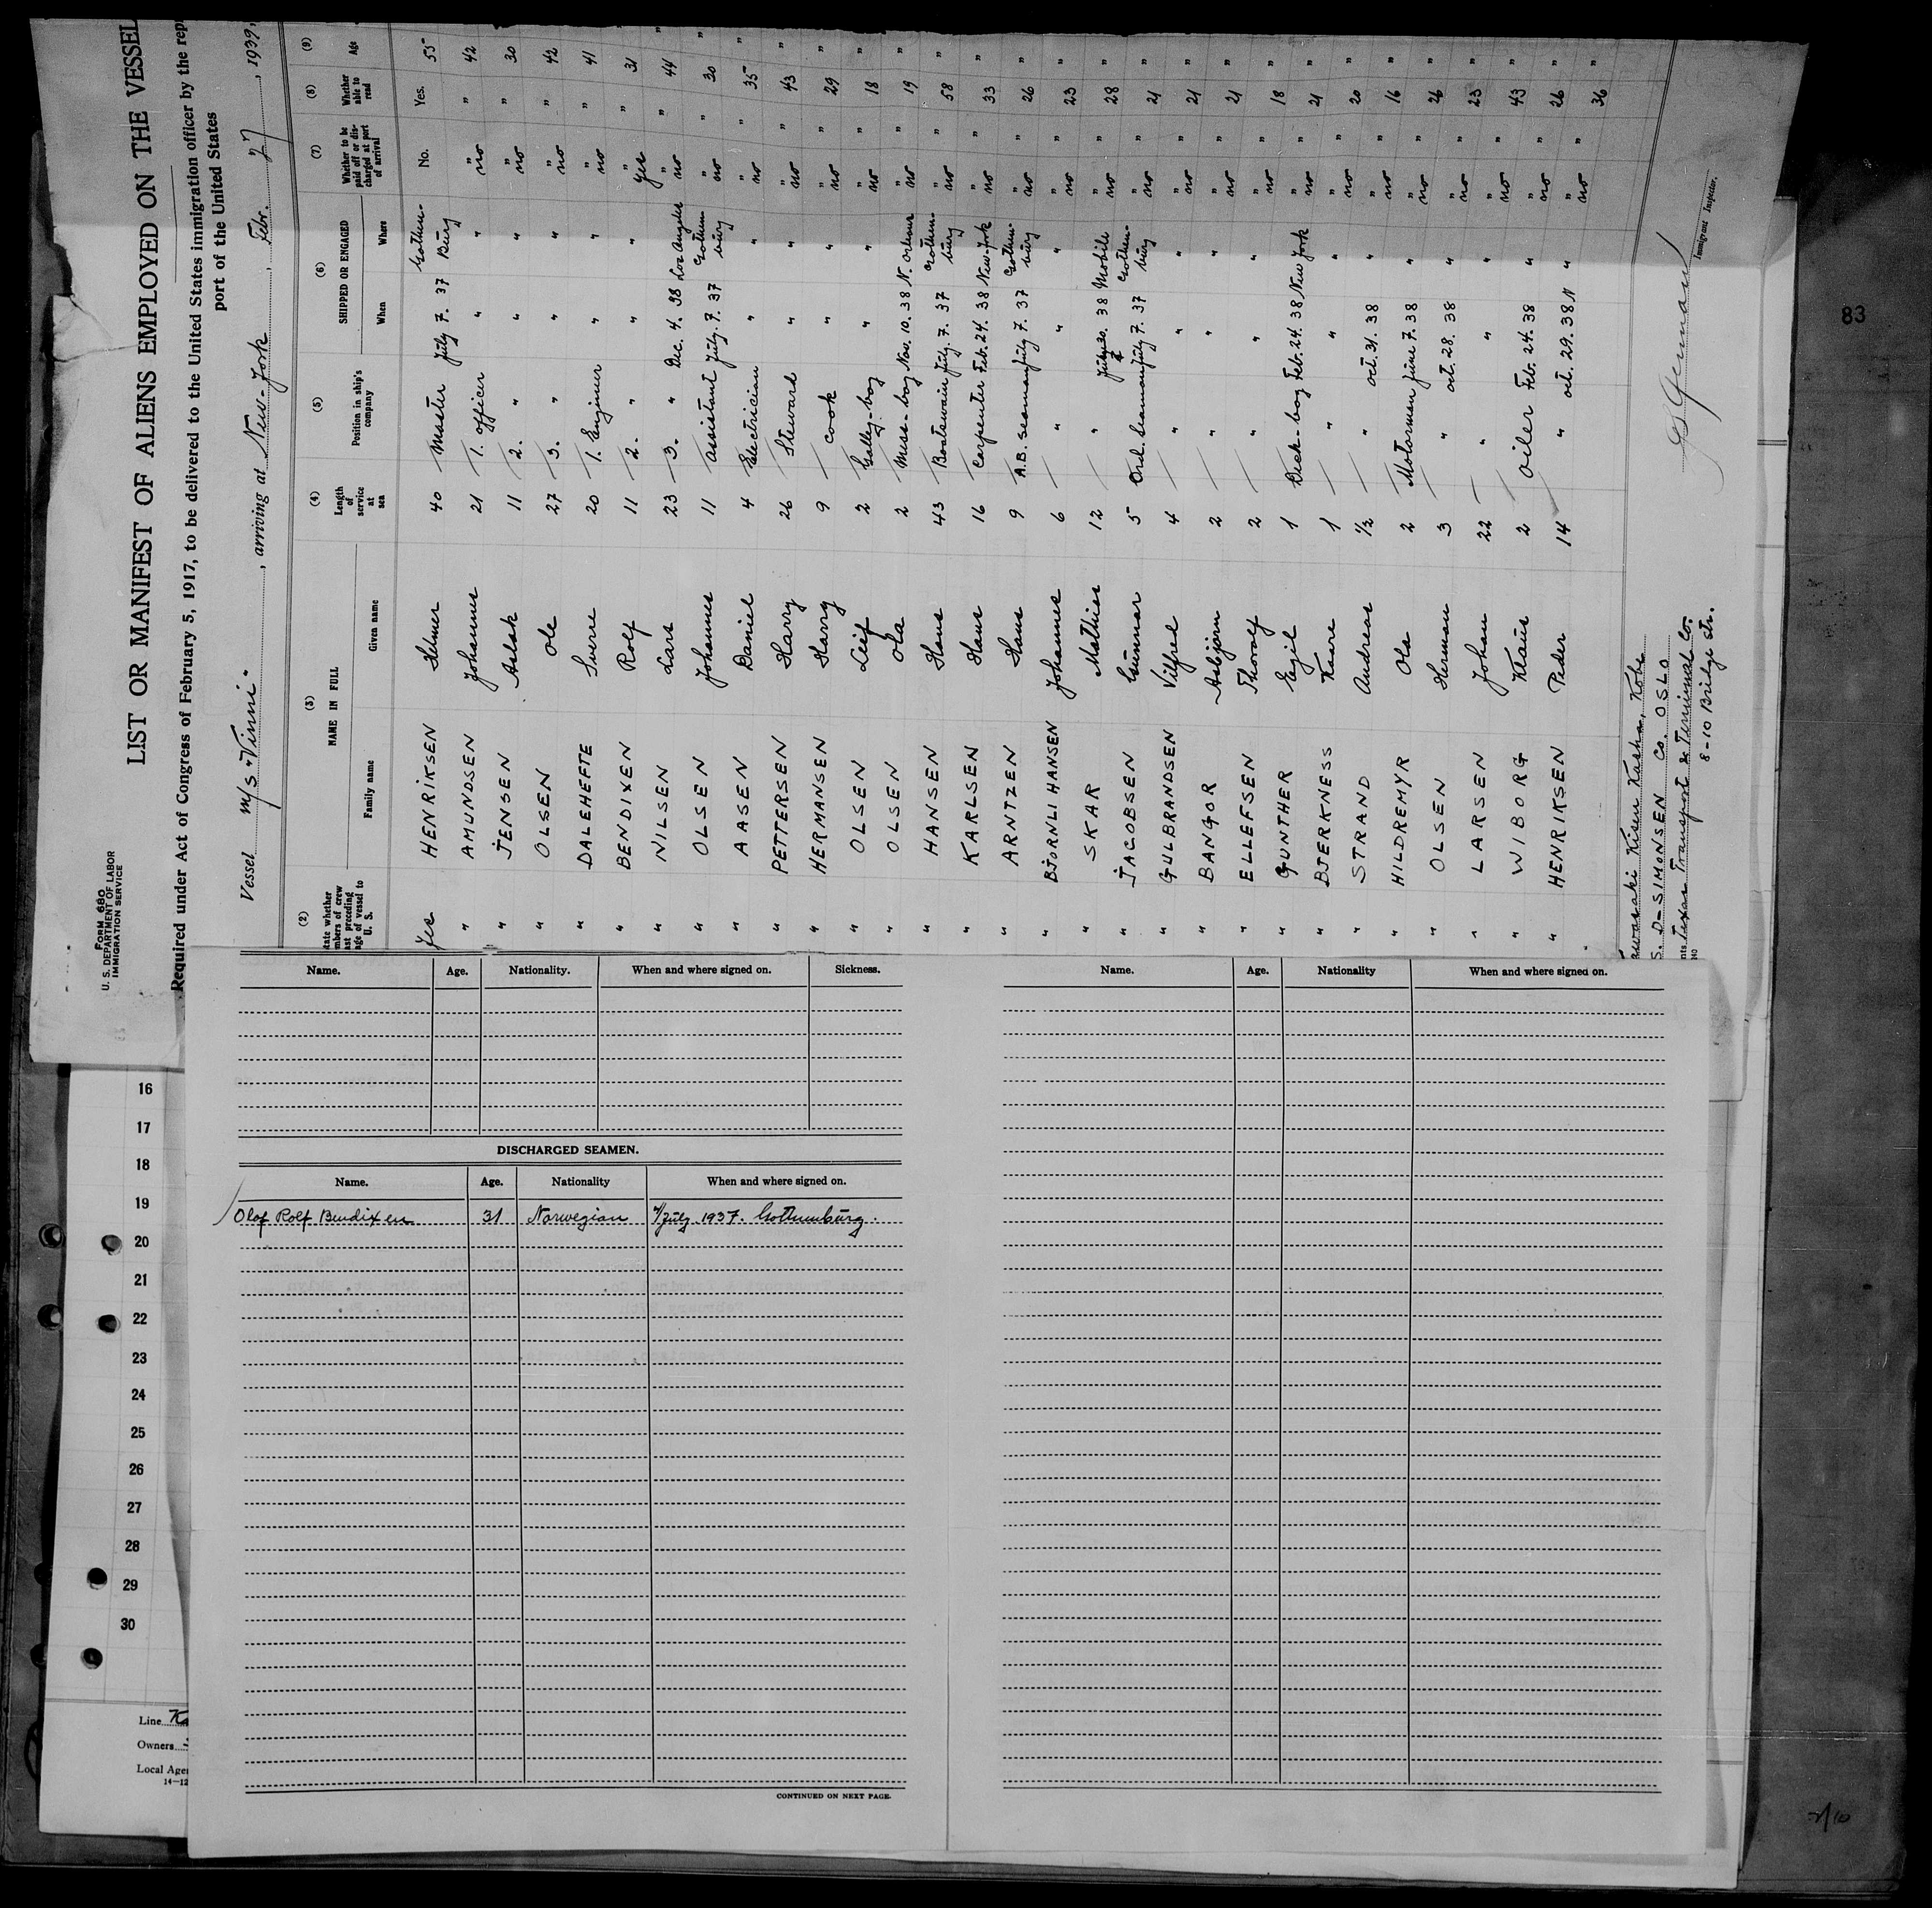 FORM 680
U. S. DEPARTMENT OF LABOR
IMMIGRATION SERVICE
LIST OR MANIFEST OF ALIENS EMPLOYED ON THE VESSEL
Required under Act of Congress of February 5, 1917, to be delivered to the United States immigration officer by the rep
port of the United States
Vessel M/S "Vinni" , arriving at New-York , Febr. 27 , 1939,
(2) (3) (4) (5) (6) (7) (8) (9)
tate whether mbers of crew ast preceding age of vessel to U. S. NAME IN FULL Length of service at sea Position in ship's company SHIPPED OR ENGAGED Whether to be paid off or discharged at port of arrival Whether able to read Age
Family name Given name When Where
Yes HENRIKSEN Hilmer 40 Master July 7. 37 Gothenburg No. Yes. 55
" AMUNDSEN Johannes 21 1. officer " " " no " 42
" JENSEN Aslak 11 2. " " " " no " 30
" OLSEN Ole 27 3. " " " " no " 42
" DALEHEFTE Sverre 20 1. Enginer " " " no " 41
" BENDIXEN Rolf 11 2. " " " " yes " 31
" NILSEN Lars 23 3. " Dec. 4. 38 Los Angeles " no " 44
" OLSEN Johannes 11 assistant July. 7. 37 Gothenburg " no " 30
" AASEN Daniel 4 Electrician " " " no " 35
" PETTERSEN Harry 26 Steward " " " no " 43
" HERMANSEN Harry 9 cook " " " no " 29
" OLSEN Leif 2 Galley-boy " " " no " 18
" OLSEN Ola 2 Mess-boy Nov. 10. 38 N. Orleans " no " 19
" HANSEN Hans 43 Boatswain July. 7. 37 Gothenburg " no " 58
" KARLSEN Hans 16 Carpenter Feb. 24. 38 New-York " no " 33
" ARNTZEN Hans 9 A.B. seaman July 7. 37 Gothenburg " no " 26
" BJØRNLI HANSEN Johannes 6 " " " " no " 23
" SKAR Mathias 12 " July 30. 38 Mobile " no " 28
" JACOBSEN Gunnar 5 Ord. Seaman July 7. 37 Gothenburg " no " 21
" GULBRANDSEN Vilfred 4 " " " " no " 21
" BANGOR Asbjørn 2 " " " " no " 21
" ELLEFSEN Thoralf 2 " " " " no " 18
" GUNTHER Egil 1 Deck-boy Feb. 24. 38 New York " no " 21
" BJERKNESS Kaare 1 " " " " no " 20
" STRAND Andreas 1/2 " oct. 31. 38 " " no " 16
" HILDREMYR Ola 2 Motorman june 7. 38 " " no " 26
" OLSEN Herman 3 " oct. 28. 38 " " no " 23
" LARSEN Johan 22 " " " " no " 43
" WIBORG Klaus 2 oiler Feb. 24. 38 " " no " 26
" HENRIKSEN Peder 14 " oct. 29. 38 " " no " 36
awasaki Kisen Kaisha, Kobe
S. D-SIMONSEN CO. OSLO
nts Texas Transport & Terminal Co.
8-10 Bridge Str.
Immigrant Inspector.
83
Name. Age. Nationality. When and where signed on. Sickness.
DISCHARGED SEAMEN.
Name. Age. Nationality When and where signed on.
Olaf Rolf Bendixen 31 Norwegian 7/July 1937. Gothenburg.
CONTINUED ON NEXT PAGE.
Name. Age. Nationality When and where signed on.
16
17
18
19
20
21
22
23
24
25
26
27
28
29
30
Line
Owners
Local Age
14—12